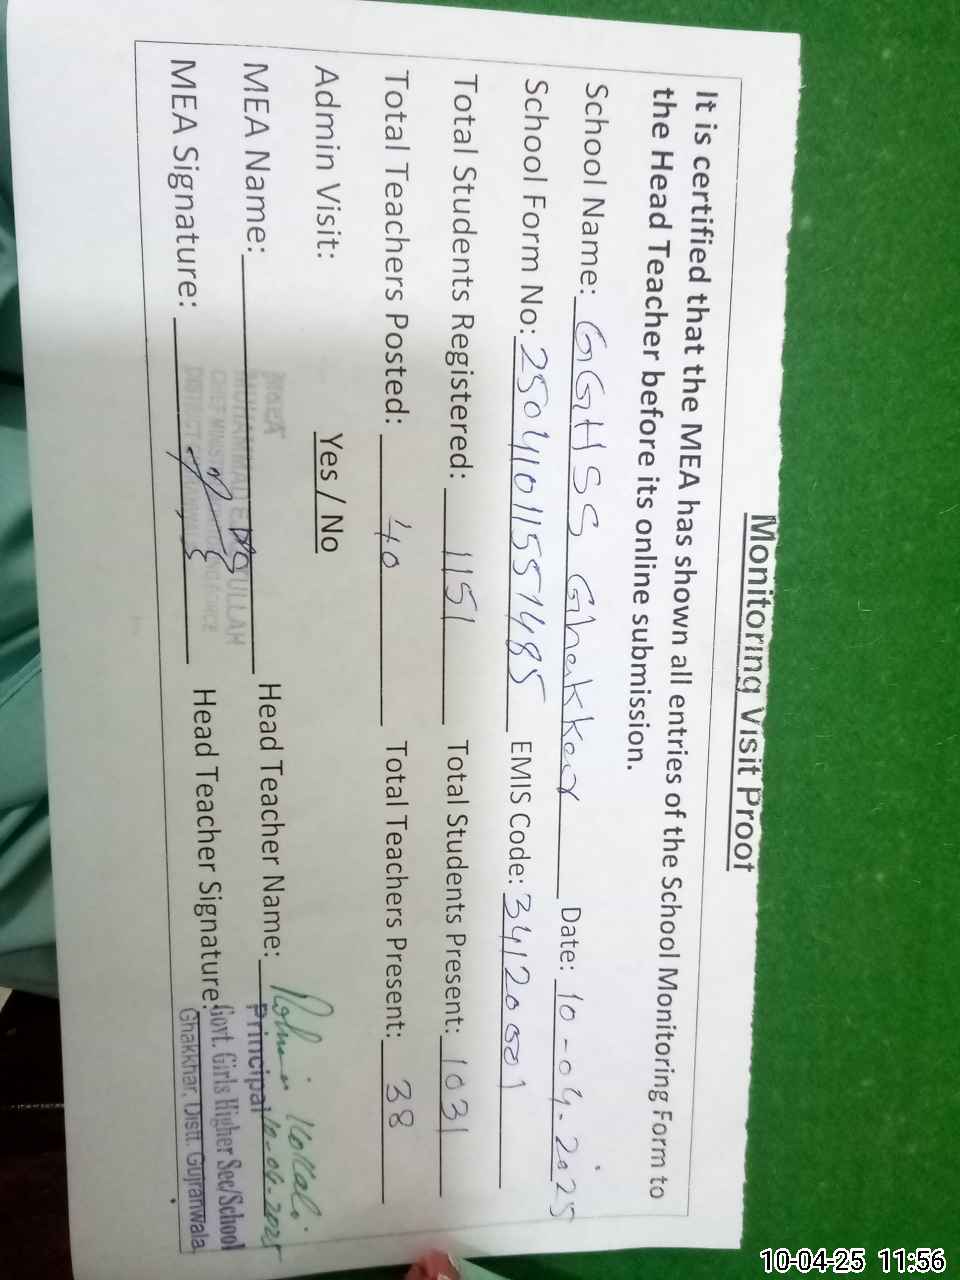 Monitoring Visit Proof
It is certified that the MEA has shown all entries of the School Monitoring Form to
the Head Teacher before its online submission.
School Name: GGHSS Ghakkar Date: 10-04-2025
School Form No: 25041011551485 EMIS Code: 34120001
Total Students Registered: 1151 Total Students Present: 1031
Total Teachers Posted: 40 Total Teachers Present: 38
Admin Visit: Yes / No
MEA Name: MUHAMMAD ULLAH Head Teacher Name:
MEA Signature: Head Teacher Signature:
CHIEF MINISTER FORCE
DISTRICT
Principal 10-04-2025
Govt. Girls Higher Sec/School
Ghakkhar, Distt. Gujranwala
10-04-25 11:56